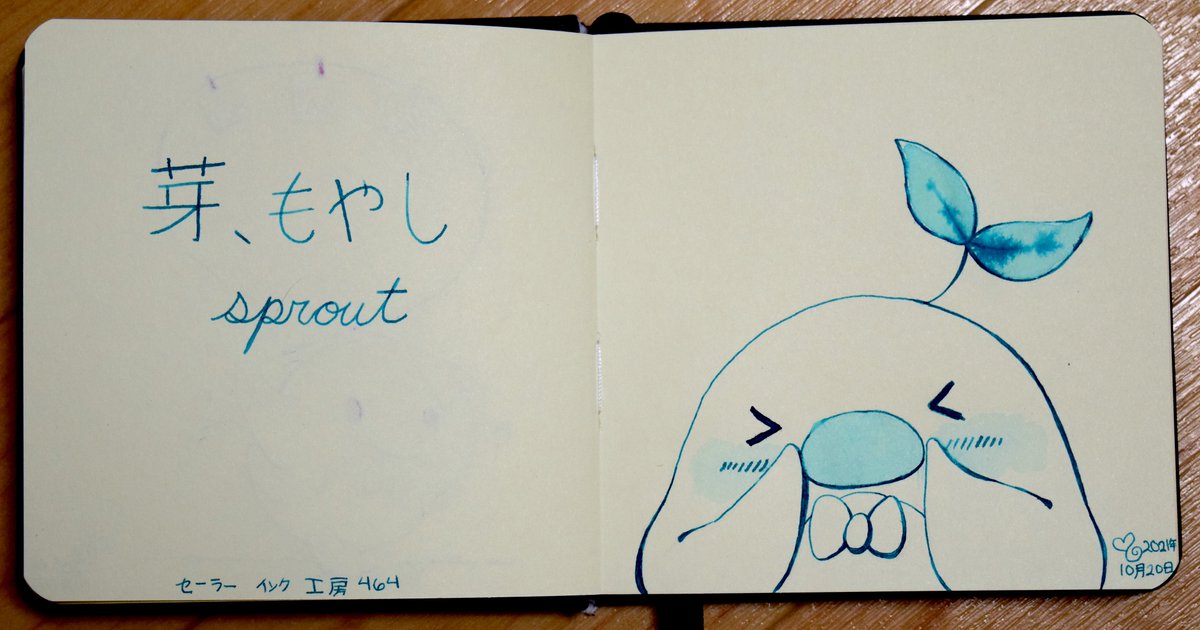 芽、もやし
sprout
セーラー インク 工房 464
2021年
10月20日